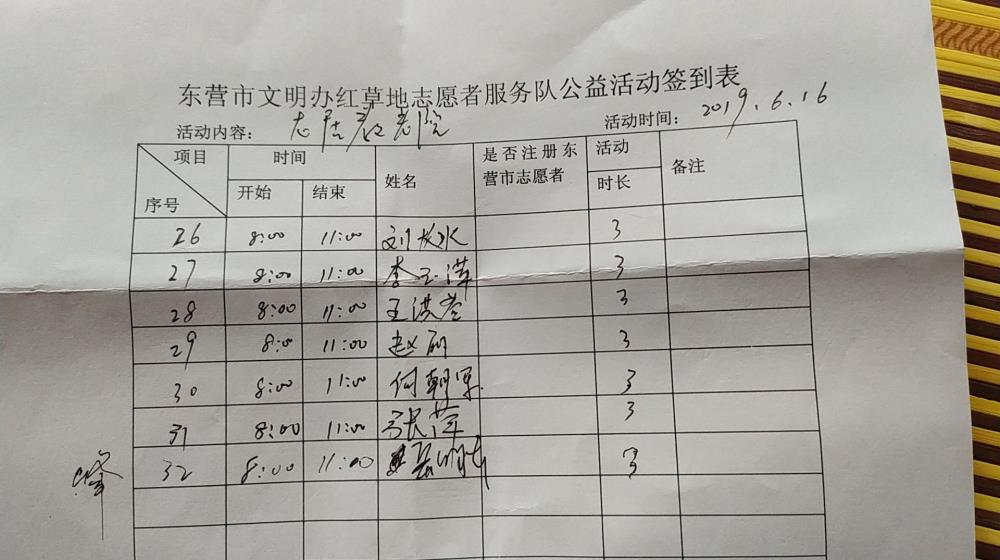 东营市文明办红草地志愿者服务队公益活动签到表
活动内容： 老院
活动时间：2019.6.16
项目 时间 姓名 是否注册东营市志愿者 活动时长 备注
序号 开始 结束
26 8:00 11:00 刘水 3
27 8:00 11:00 李玉萍 3
28 8:00 11:00 王洪 3
29 8:00 11:00 赵丽 3
30 8:00 11:00 何朝军 3
31 8:00 11:00 张萍 3
32 8:00 11:00 3